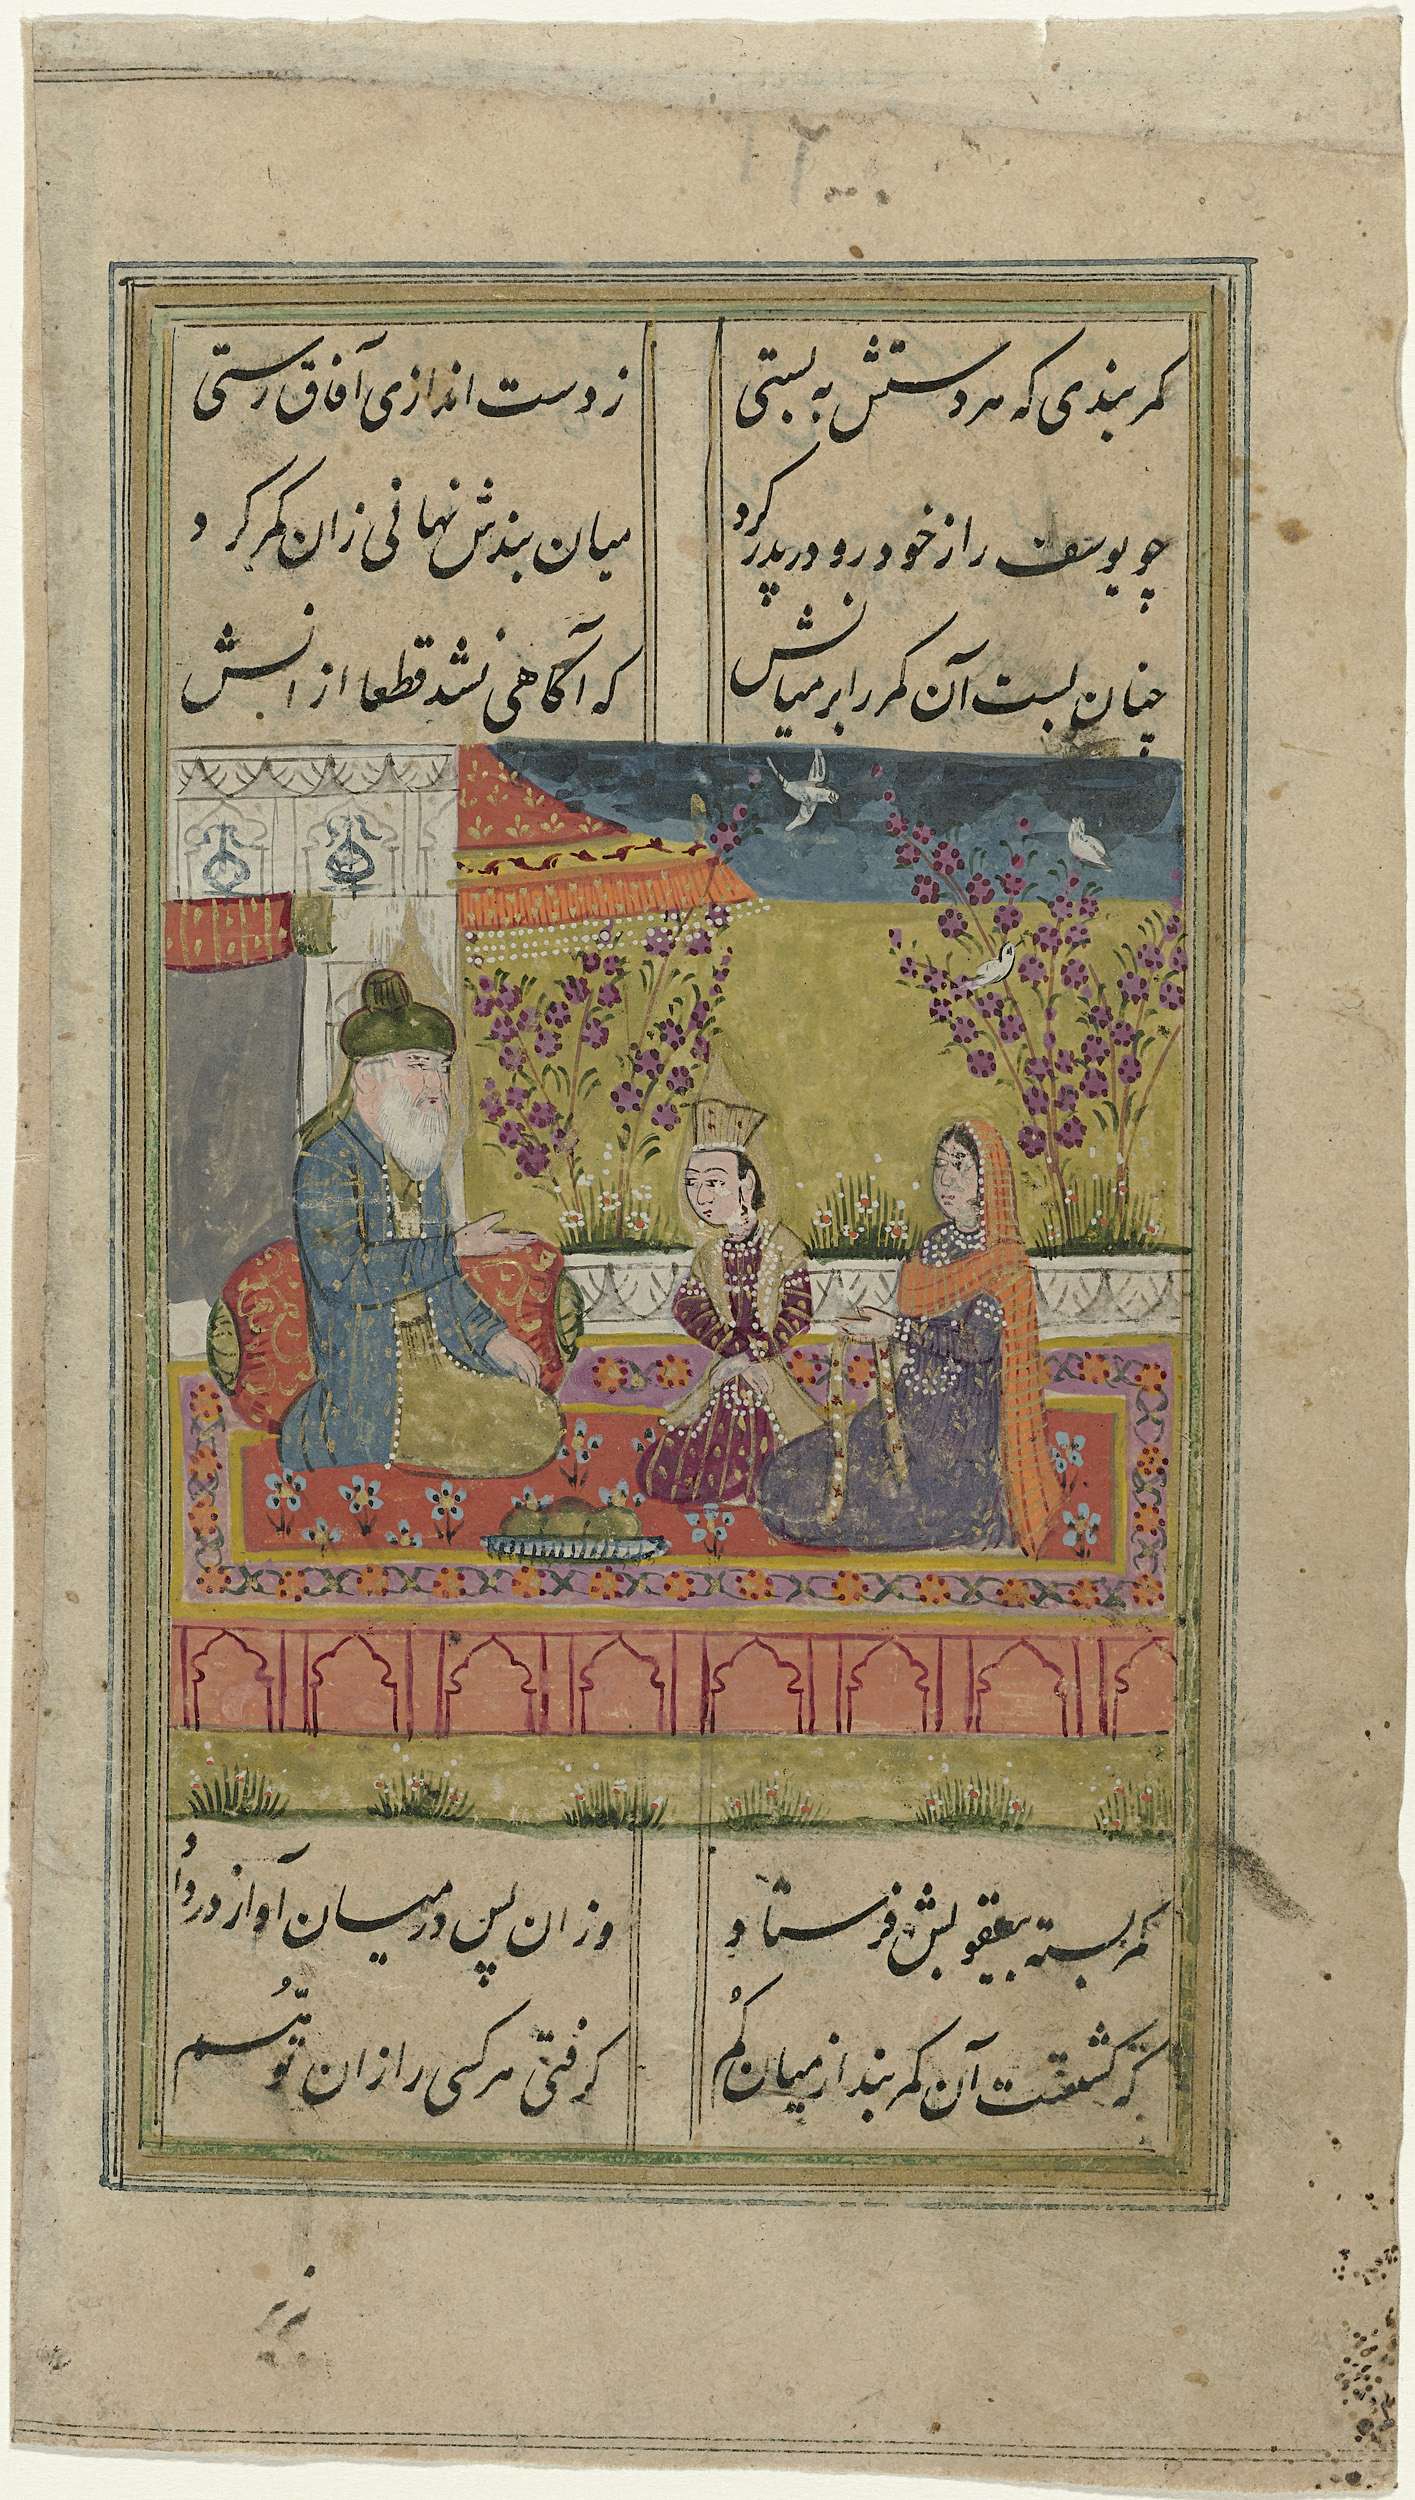 کمر بندی که هر دستش به بستی
ز دست اندازی آفاق رستی
چو یوسف را ز خود رو در پدر کرد
میان بندش نهانی زان کمر کرد
چنان بست آن کمر را بر میانش
که آکاهی نشد قطعا از انش
کمر بسته بیعقوبش فرستاد
وزان پس در میان آواز در داد
که کشتست آن کمر بند از میان کُم
کرفتی هر کسی را زان تَوَهُّم